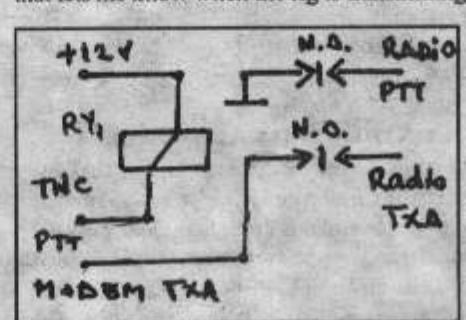 +12V
N.O.
RADIO
PTT
RY1
N.O.
Radio
TXA
TNC
PTT
MODEM TXA